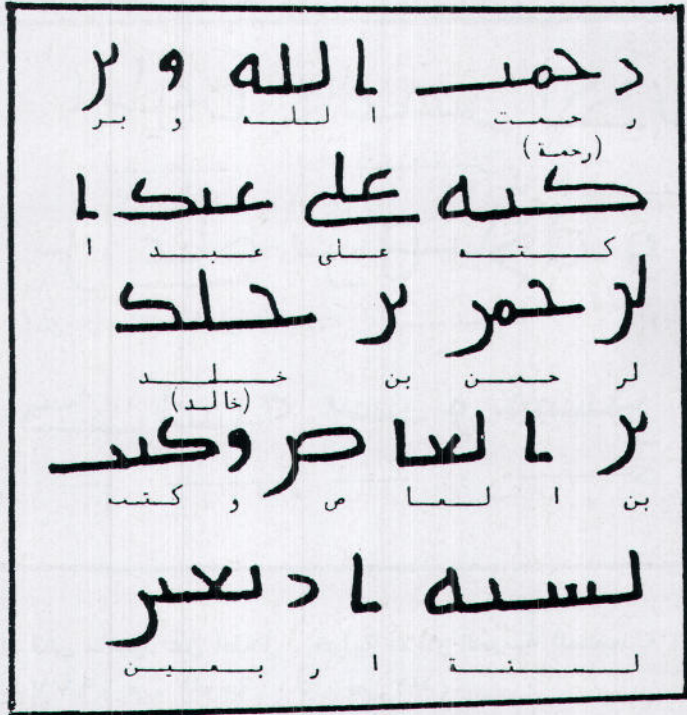 رحمت الله وبر
ر حمت ا لله و بر
(رحمة)
كته على عبد ا
كتـه على عبد ا
لرحمن بن خلد
لر حمن بن خلد
(خالد)
بن العاص وكتب
بن ا لعا ص و كتب
لسنة اربعين
لسنة ا ر بعين